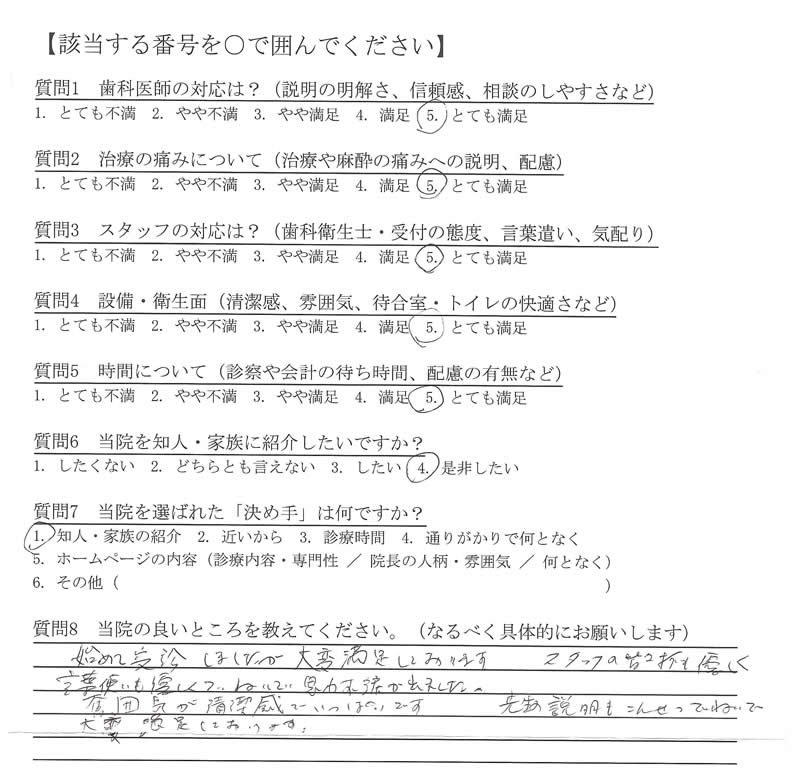 【該当する番号を〇で囲んでください】
質問1　歯科医師の対応は？（説明の明解さ、信頼感、相談のしやすさなど）
1. とても不満　2. やや不満　3. やや満足　4. 満足　5. とても満足
質問2　治療の痛みについて（治療や麻酔の痛みへの説明、配慮）
1. とても不満　2. やや不満　3. やや満足　4. 満足　5. とても満足
質問3　スタッフの対応は？（歯科衛生士・受付の態度、言葉遣い、気配り）
1. とても不満　2. やや不満　3. やや満足　4. 満足　5. とても満足
質問4　設備・衛生面（清潔感、雰囲気、待合室・トイレの快適さなど）
1. とても不満　2. やや不満　3. やや満足　4. 満足　5. とても満足
質問5　時間について（診察や会計の待ち時間、配慮の有無など）
1. とても不満　2. やや不満　3. やや満足　4. 満足　5. とても満足
質問6　当院を知人・家族に紹介したいですか？
1. したくない　2. どちらとも言えない　3. したい　4. 是非したい
質問7　当院を選ばれた「決め手」は何ですか？
1. 知人・家族の紹介　2. 近いから　3. 診療時間　4. 通りがかりで何となく
5. ホームページの内容（診療内容・専門性 ／ 院長の人柄・雰囲気 ／ 何となく）
6. その他（　　　　　　　　　　　　　　　　　　　　　　）
質問8　当院の良いところを教えてください。（なるべく具体的にお願いします）
始めて受診しましたが大変満足しております　スタッフの皆様も優しく
言葉使いも優しくていねいで
雰囲気が清潔感でいっぱいです　先生の説明もこんせつていねいで
大変満足しております。